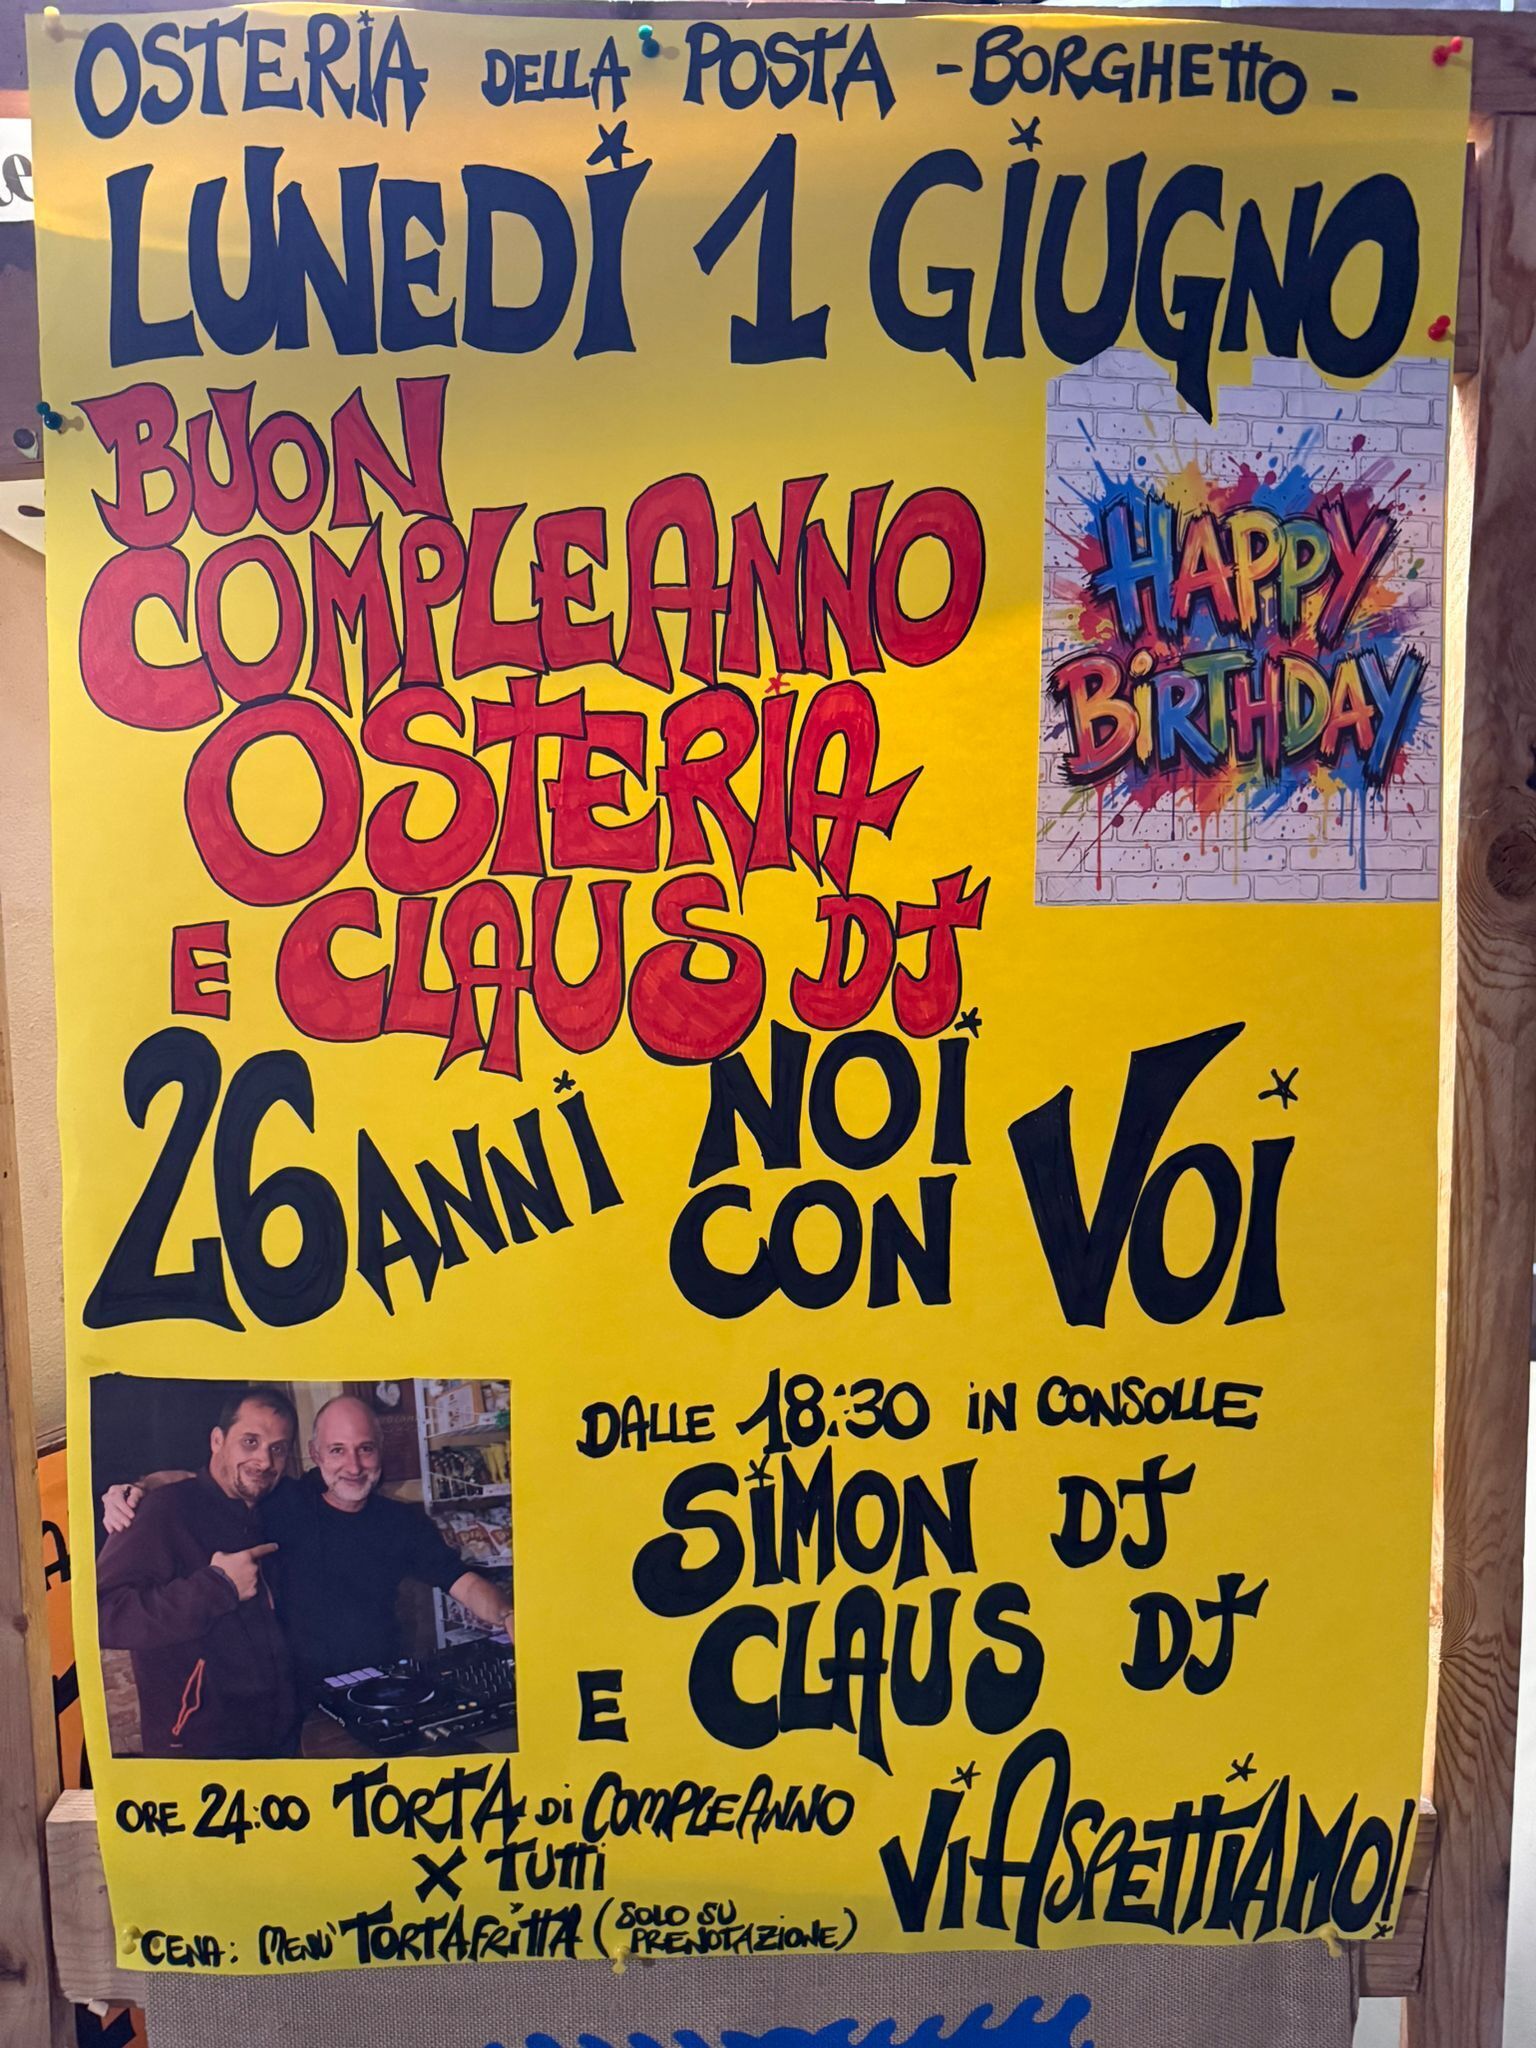 OSTERIA DELLA POSTA - BORGHETTO -
LUNEDI 1 GIUGNO
BUON
COMPLEANNO
OSTERIA
E CLAUS DJ
HAPPY
BIRTHDAY
26 ANNI NOI
CON VOI
DALLE 18:30 IN CONSOLLE
SIMON DJ
E CLAUS DJ
ORE 24:00 TORTA DI COMPLEANNO
X TUTTI
VI ASPETTIAMO!
CENA: MENÙ TORTAFRITTA (SOLO SU
PRENOTAZIONE)